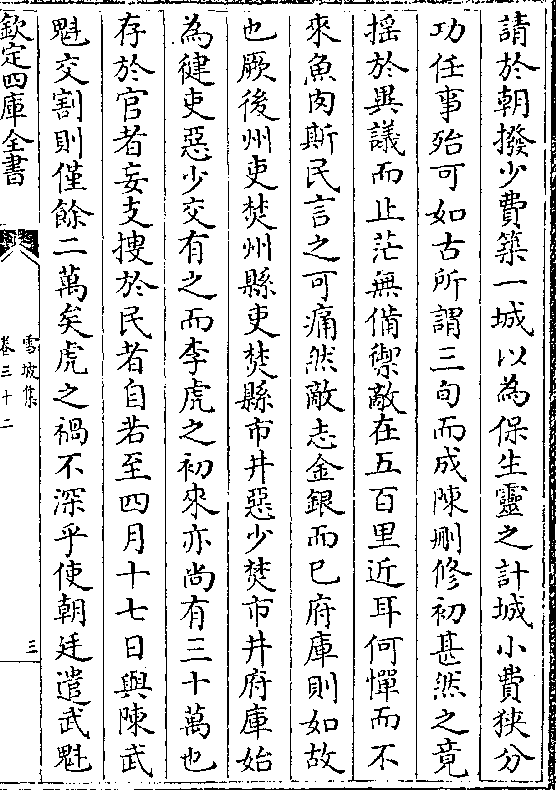 請於朝撥少費築一城以為保生靈之計城小費狹分
功任事殆可如古所謂三旬而成陳刪修初甚然之竟
揺於異議而止茫無備禦敵在五百里近耳何憚而不
來魚肉斯民言之可痛然敵志金銀而已府庫則如故
也厥後州吏焚州縣吏焚縣市井惡少焚市井府庫始
為健吏惡少交有之而李虎之初來亦尚有三十萬也
存於官者妄支捜於民者自若至四月十七日與陳武
魁交割則僅餘二萬矣虎之禍不深乎使朝廷遣武魁
欽定四庫全書
雪坡集
卷三十二
三